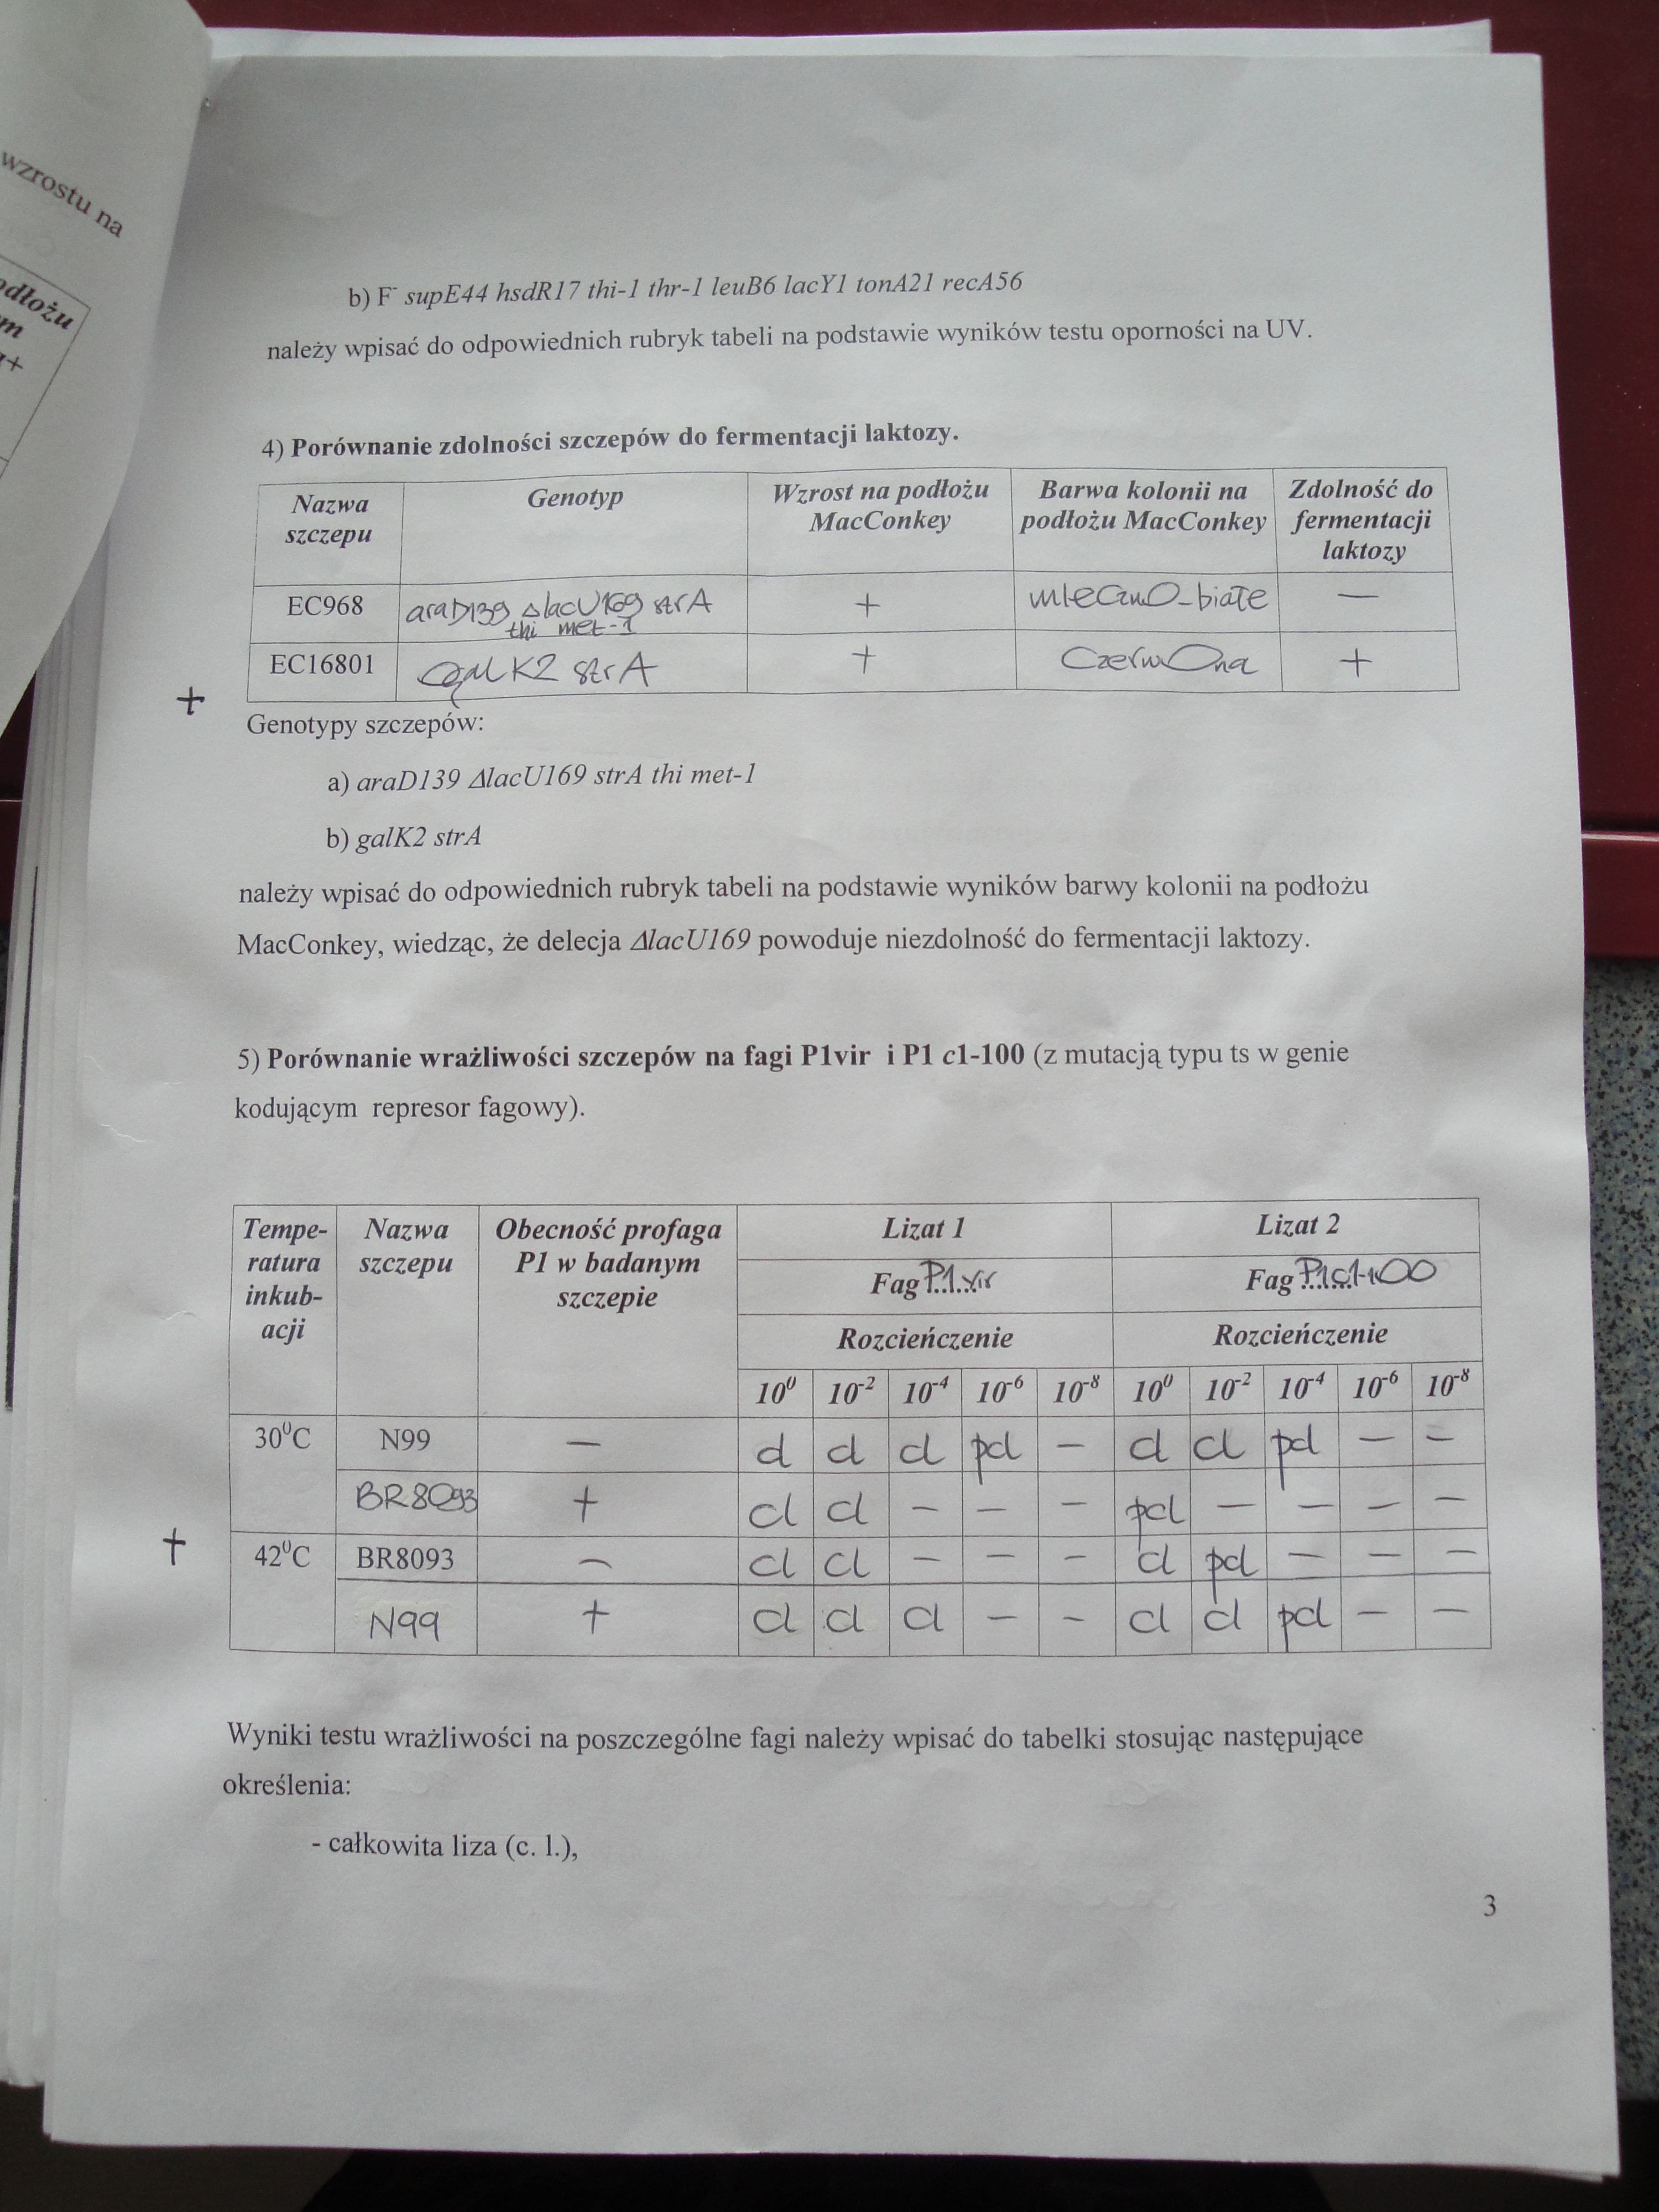 wzrostu na
podłożu
m
r+
b) F⁻ supE44 hsdR17 thi-1 thr-1 leuB6 lacY1 tonA21 recA56
należy wpisać do odpowiednich rubryk tabeli na podstawie wyników testu oporności na UV.
4) Porównanie zdolności szczepów do fermentacji laktozy.
Nazwa szczepu Genotyp Wzrost na podłożu MacConkey Barwa kolonii na podłożu MacConkey Zdolność do fermentacji laktozy
EC968 araD139 ΔlacU169 strA thi met-1 + mleczno-białe —
EC16801 galK2 strA + czerwona +
+
Genotypy szczepów:
a) araD139 ΔlacU169 strA thi met-1
b) galK2 strA
należy wpisać do odpowiednich rubryk tabeli na podstawie wyników barwy kolonii na podłożu
MacConkey, wiedząc, że delecja ΔlacU169 powoduje niezdolność do fermentacji laktozy.
5) Porównanie wrażliwości szczepów na fagi P1vir i P1 c1-100 (z mutacją typu ts w genie
kodującym represor fagowy).
Tempe-ratura inkub-acji Nazwa szczepu Obecność profaga P1 w badanym szczepie Lizat 1 Lizat 2
Fag P1vir Fag P1c1-100
Rozcieńczenie Rozcieńczenie
10⁰ 10⁻² 10⁻⁴ 10⁻⁶ 10⁻⁸ 10⁰ 10⁻² 10⁻⁴ 10⁻⁶ 10⁻⁸
30⁰C N99 — cl cl cl pcl — cl cl pcl — —
BR8093 + cl cl — — — pcl — — — —
+ 42⁰C BR8093 — cl cl — — — cl pcl — — —
N99 + cl cl cl — — cl cl pcl — —
Wyniki testu wrażliwości na poszczególne fagi należy wpisać do tabelki stosując następujące
określenia:
- całkowita liza (c. l.),
3